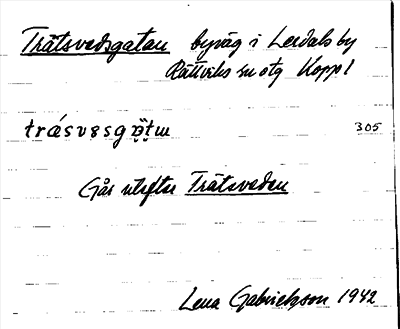 Trätsvedsgatan byväg i Lerdals by
Rättviks sn otg Koppl
trásvɛsgɒ̈tɯ 305
Går utefter Trätsveden
Lena Gabrielsson 1942